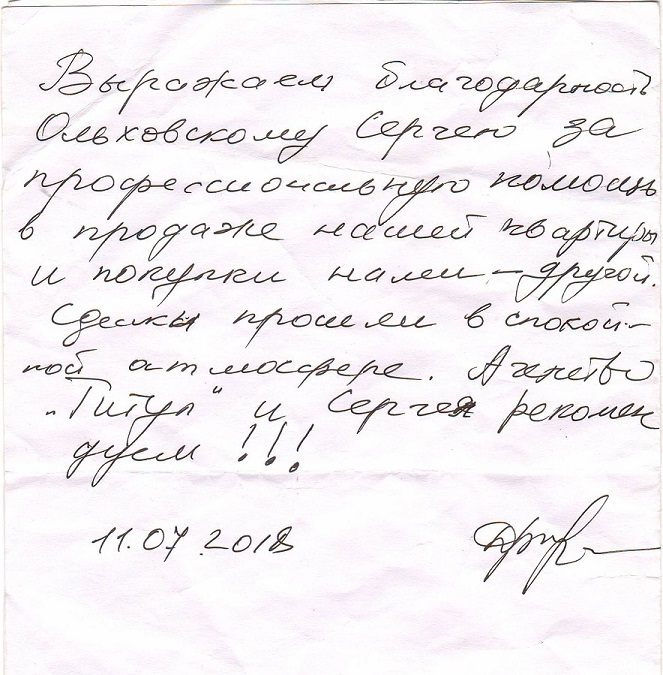 Выражаем благодарность
Ольховскому Сергею за
профессиональную помощь
в продаже нашей квартиры
и покупки нами – другой.
Сделки прошли в спокой-
ной атмосфере. Агенство
„Титул“ и Сергея рекомен
дуем !!!
11.07.2018